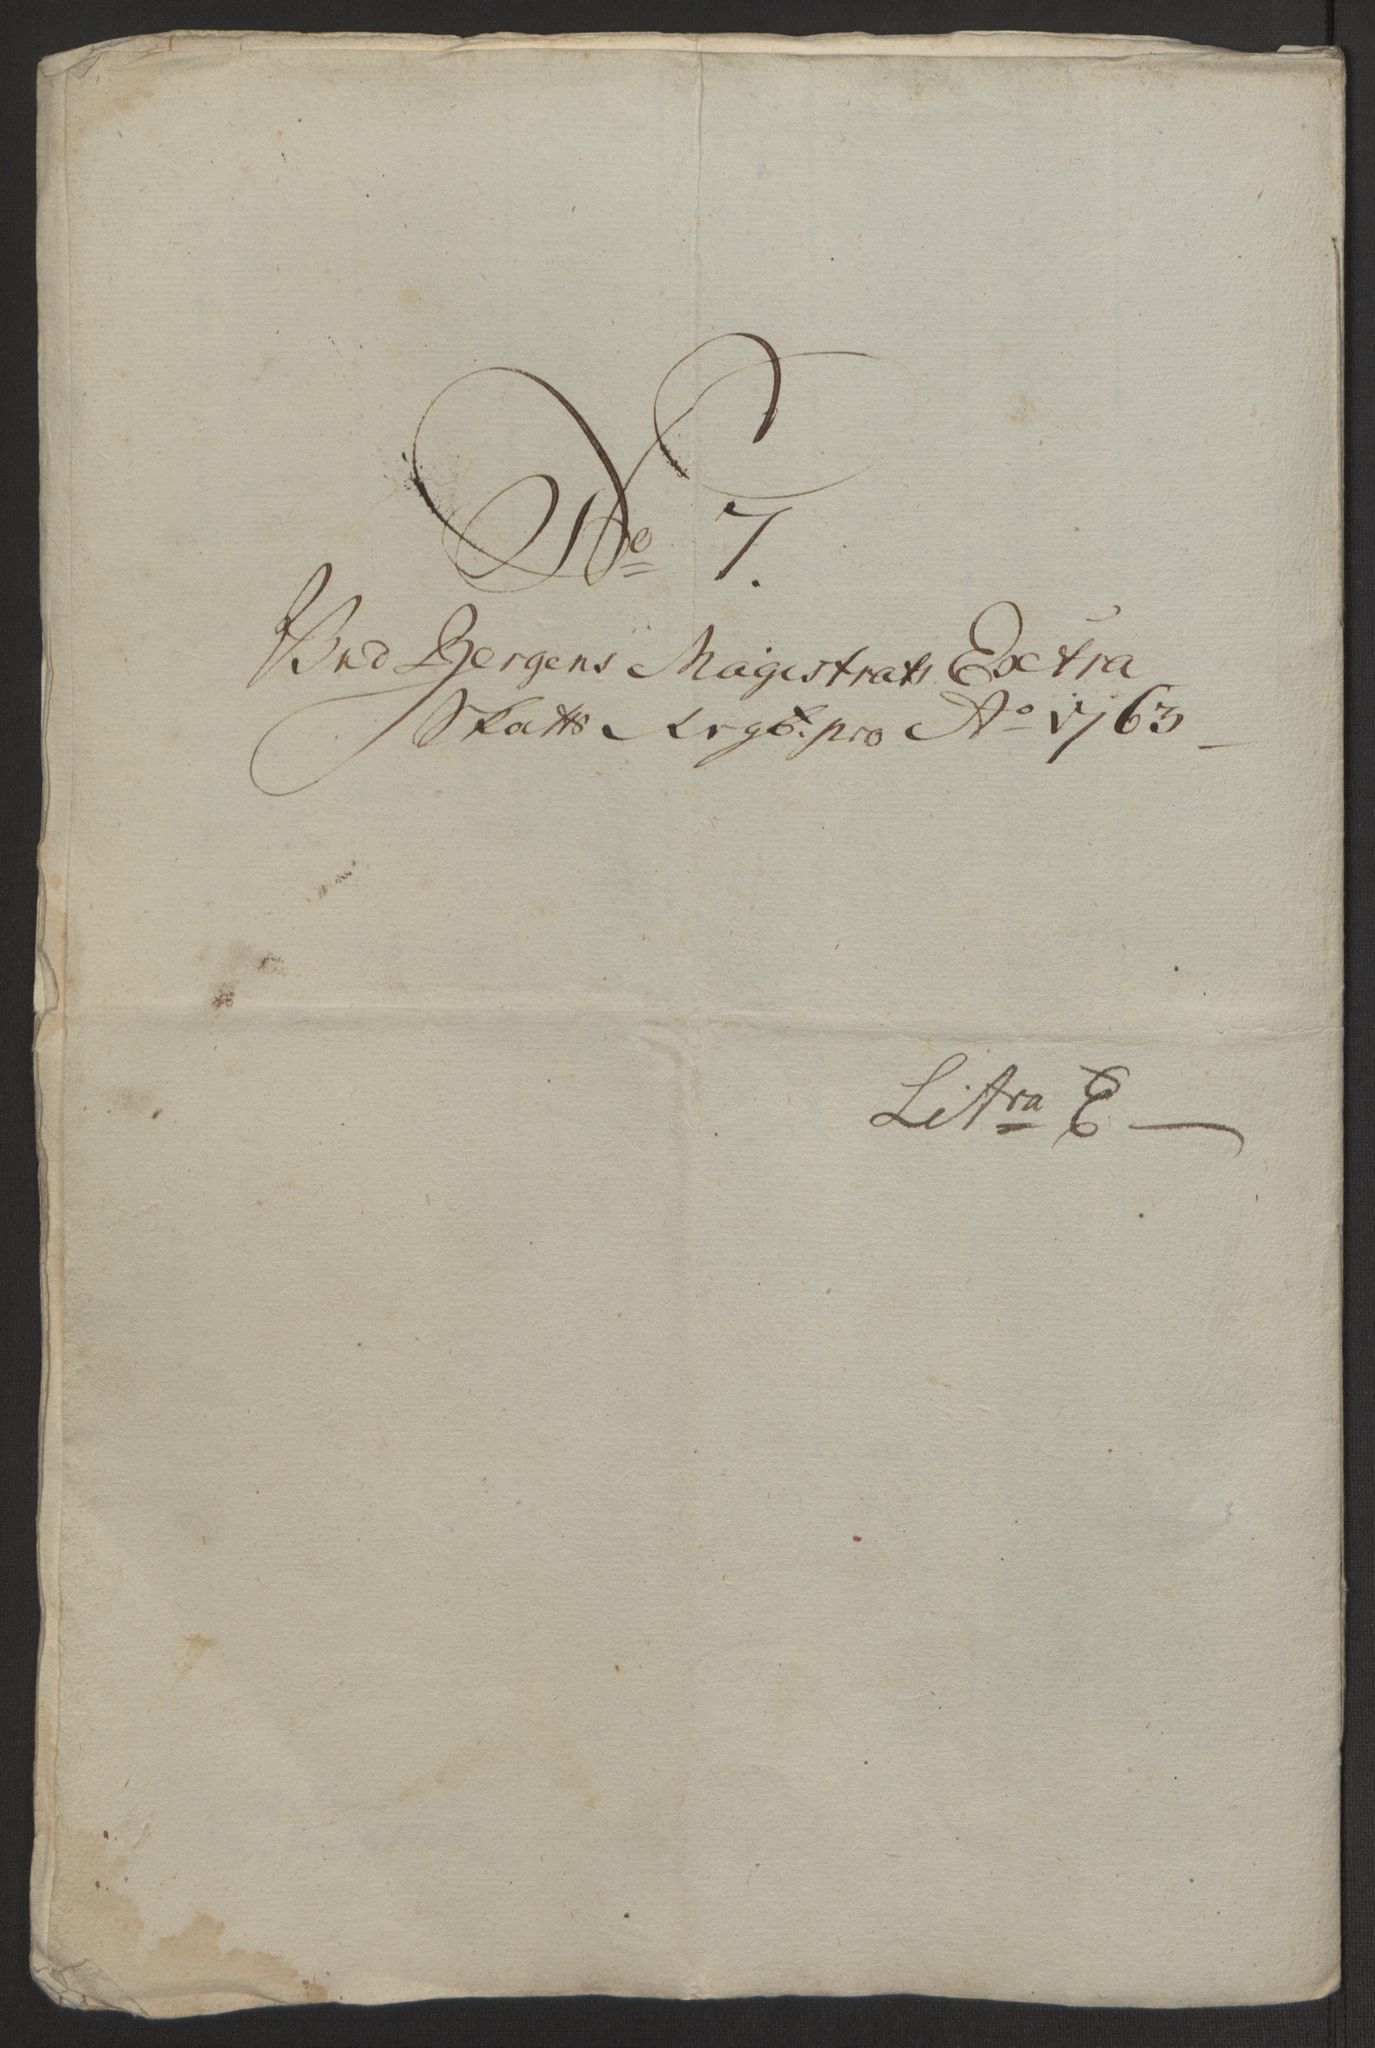 No 7.
Ved Bergens Magistrats Extra
Skatts Rrgb: pro Ao 1763
Litra E